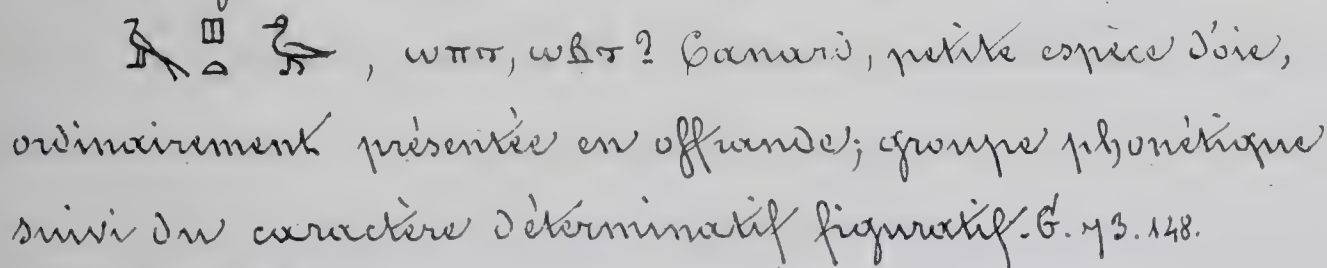 𓄿𓊪𓏏𓅬, ⲱⲡⲧ, ⲱⲃⲧ? Canard, petite espèce d'oie,
ordinairement présentée en offrande; groupe phonétique
suivi du caractère déterminatif figuratif. G. 73. 148.